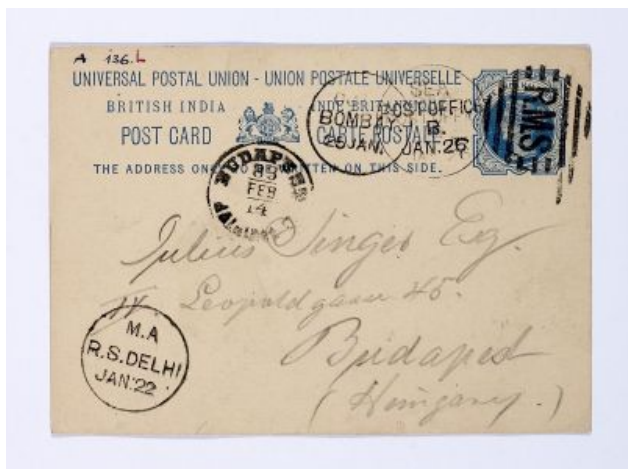 A 136.L
UNIVERSAL POSTAL UNION - UNION POSTALE UNIVERSELLE
BRITISH INDIA INDE BRITANNIQUE
POST CARD CARTE POSTALE
THE ADDRESS ONLY TO BE WRITTEN ON THIS SIDE.
BOMBAY
25 JAN.
SEA
POST OFFICE
B.
JAN. 26
R.M.S
BUDAPEST
89
FEB
14
Julius Singer Esq.
IV Leopoldgasse 45.
Budapest
(Hungary.)
M.A
R.S.DELHI
JAN.22